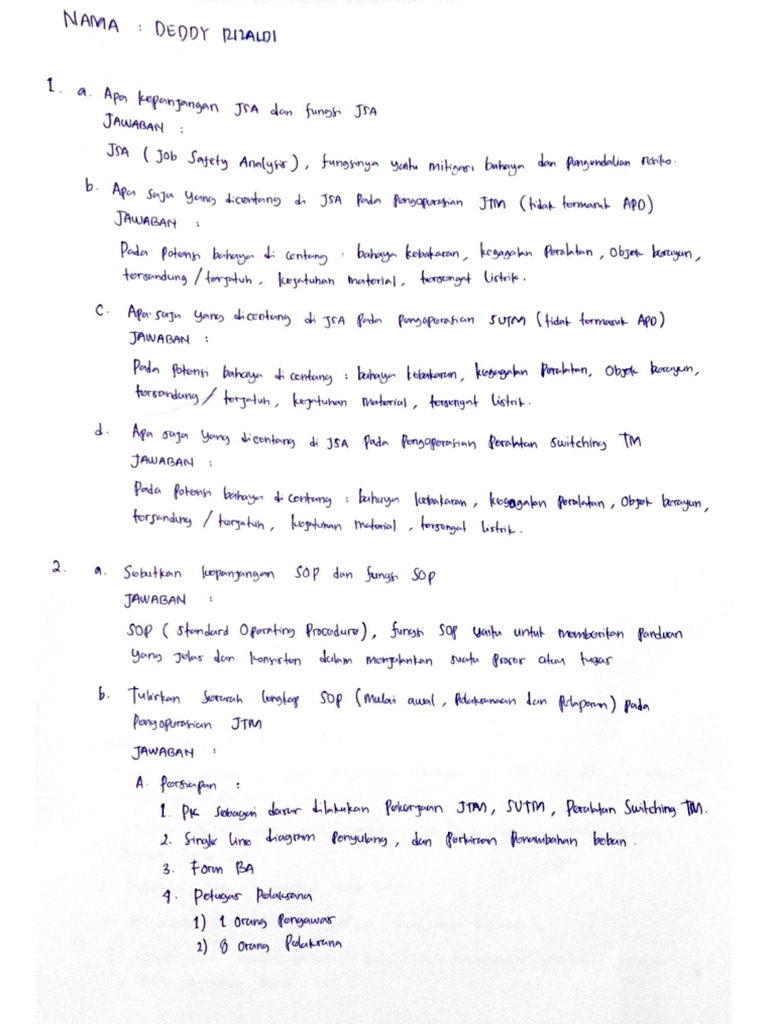 NAMA : DEDDY RIZALDI
1. a. Apa kepanjangan JSA dan fungsi JSA
JAWABAN :
JSA (Job Safety Analysis), fungsinya yaitu mitigasi bahaya dan pengendalian resiko.
b. Apa saja yang dicentang di JSA pada Pengoperasian JTM (tidak termasuk APD)
JAWABAN :
Pada Potensi bahaya di centang : bahaya kebakaran, kegagalan Peralatan, Objek berayun,
tersandung / terjatuh, kejatuhan material, tersengat listrik.
c. Apa saja yang dicentang di JSA pada pengoperasian SUTM (tidak termasuk APD)
JAWABAN :
Pada Potensi bahaya di centang : bahaya kebakaran, kegagalan Peralatan, Objek berayun,
tersandung / terjatuh, kejatuhan material, tersengat listrik.
d. Apa saja yang dicentang di JSA pada Pengoperasian Peralatan Switching TM
JAWABAN :
Pada Potensi bahaya di centang : bahaya kebakaran, kegagalan Peralatan, Objek berayun,
tersandung / terjatuh, kejatuhan material, tersengat listrik.
2. a. Sebutkan kepanjangan SOP dan fungsi SOP
JAWABAN :
SOP (Standard Operating Procedure), fungsi SOP yaitu untuk memberikan Panduan
yang jelas dan konsisten dalam menjalankan suatu proses atau tugas
b. Tuliskan seluruh lengkap SOP (Mulai awal, Pelaksanaan dan Pelaporan) pada
Pengoperasian JTM
JAWABAN :
A. Persiapan :
1. PK sebagai dasar dilakukan Pekerjaan JTM, SUTM, Peralatan Switching TM.
2. Single Line diagram Penyulang, dan Perkiraan Penambahan beban.
3. Form BA
4. Petugas Pelaksana
1) 1 Orang Pengawas
2) 8 Orang Pelaksana